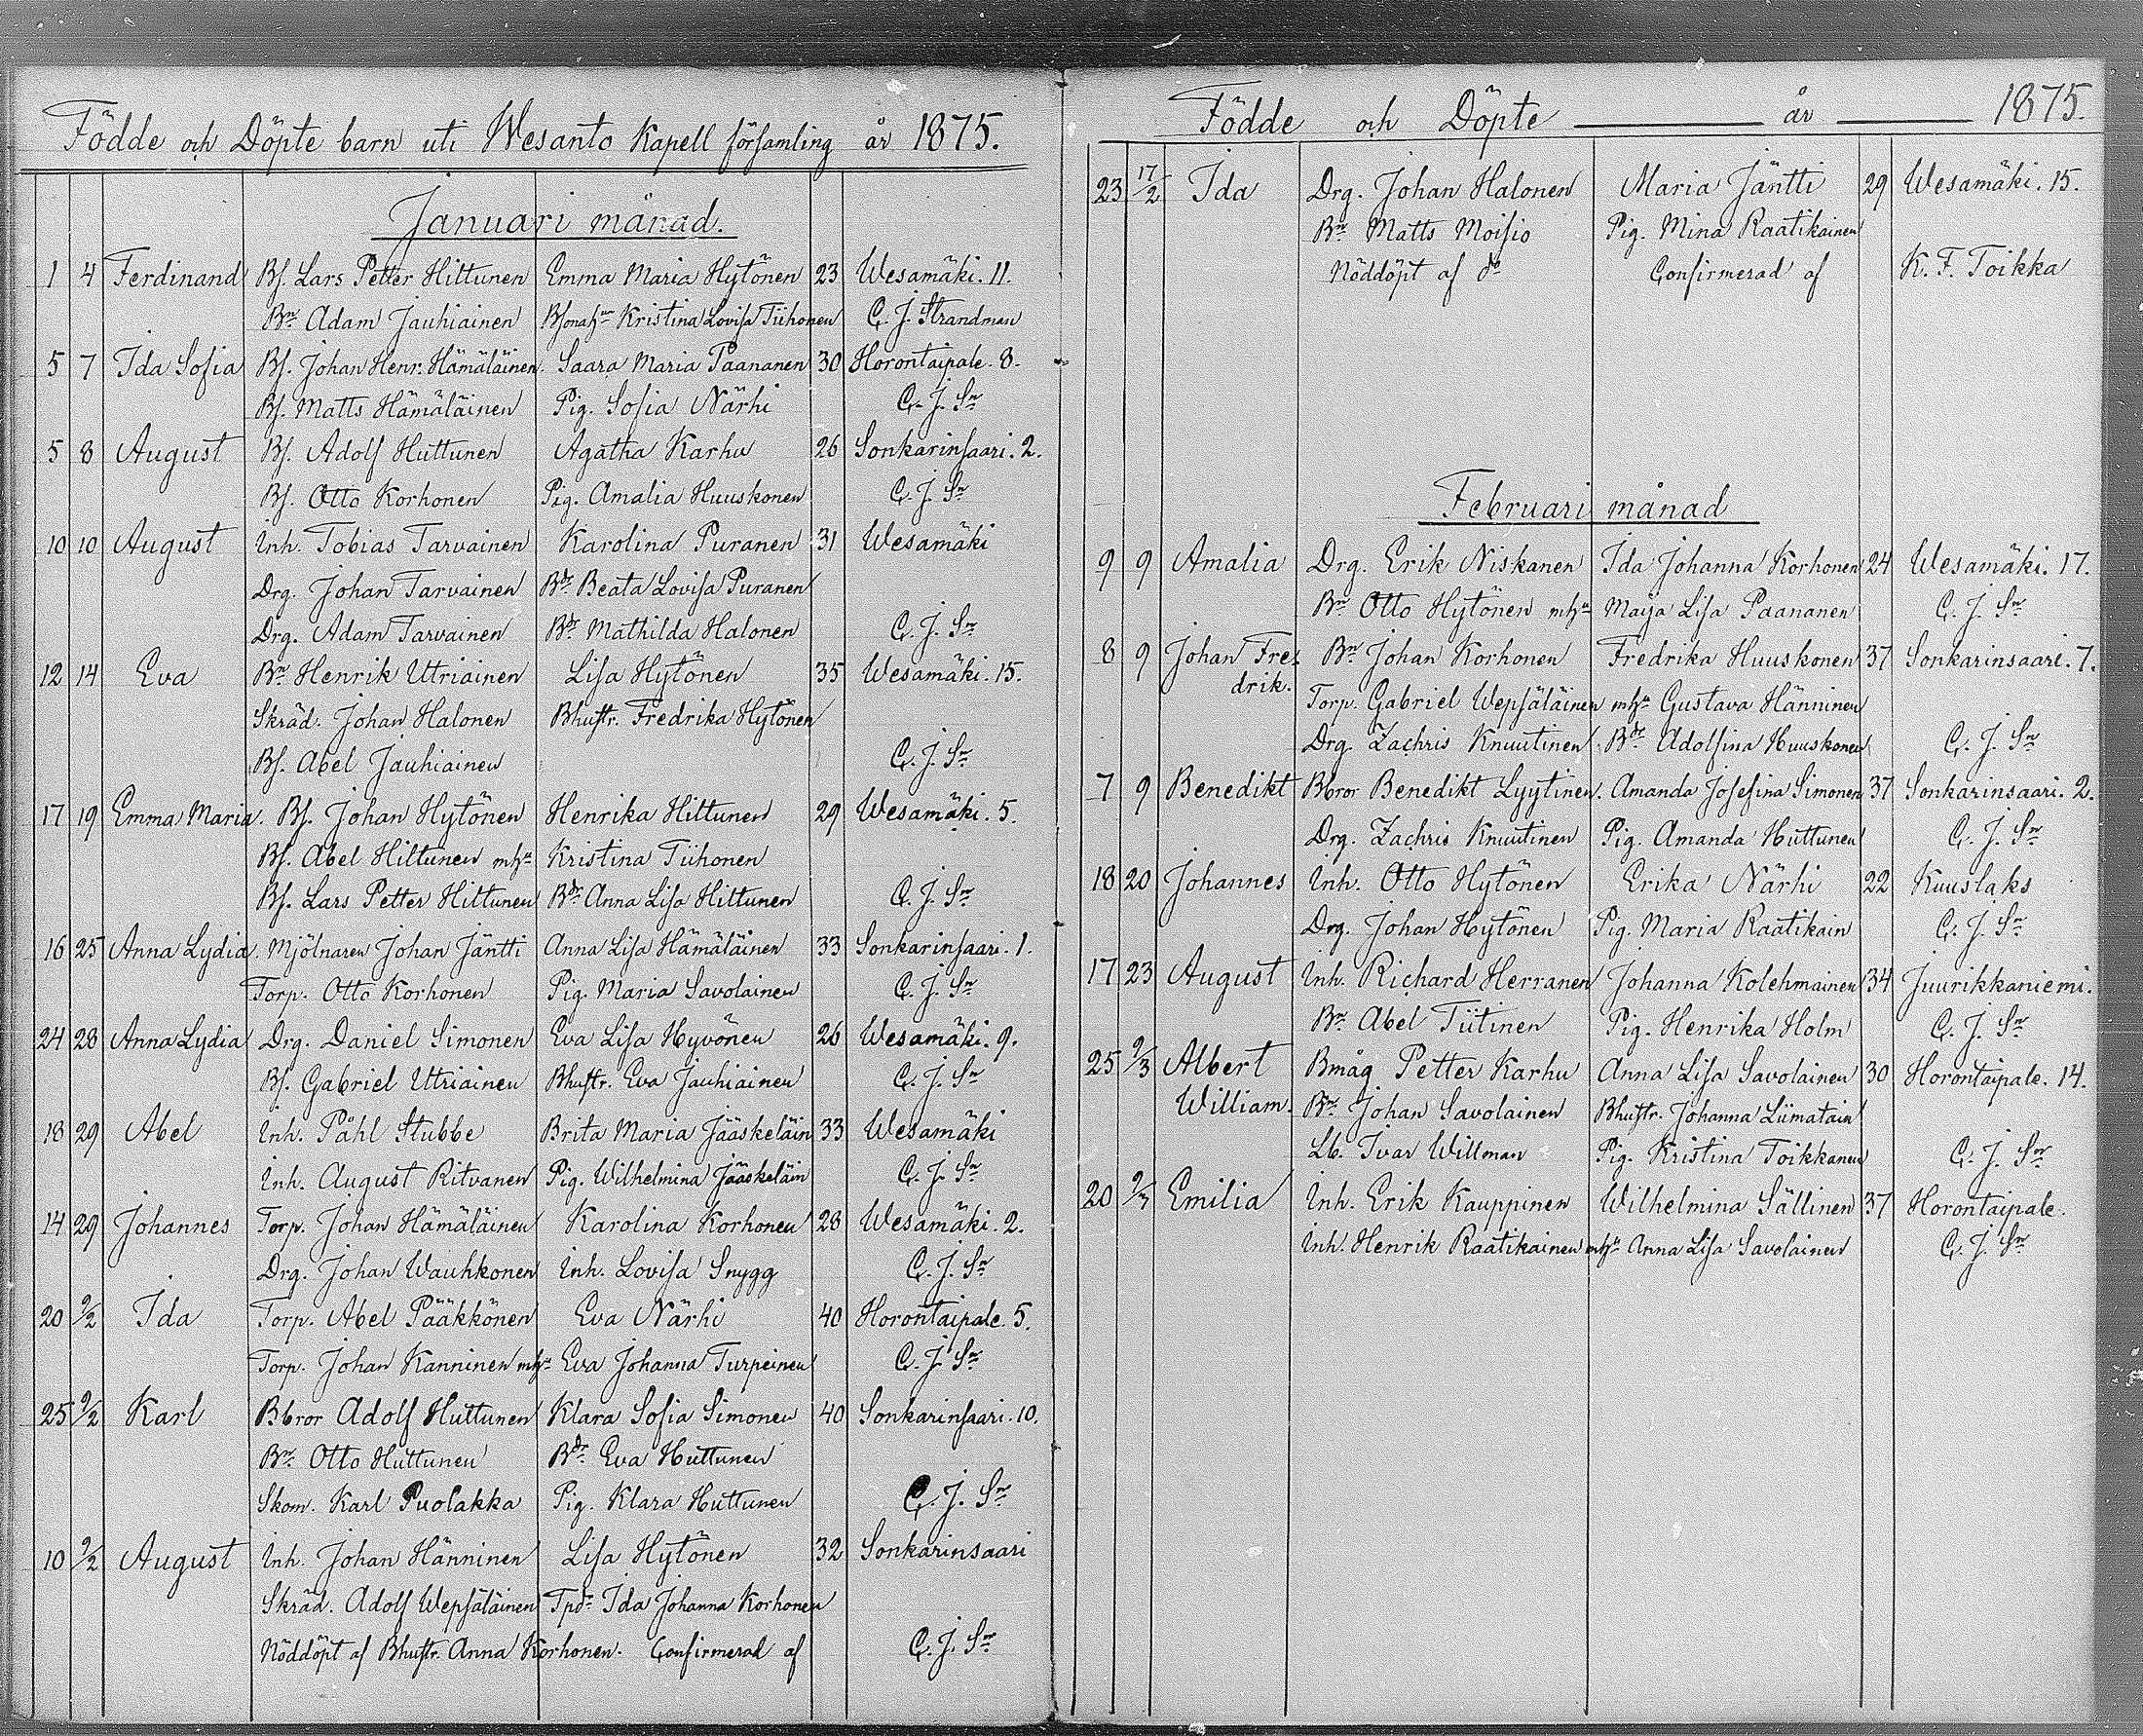 Födde och Döpte barn uti Wesanto Kapell församling år 1875.
Januari månad.
1 4 Ferdinand Bs. Lars Petter Hiltunen Emma Maria Hytönen 23 Wesamäki. 11.
Bn. Adam Jauhiainen Bsonahun Kristina Lovisa Tiihonen C. J. Strandman
5 7 Ida Sofia Bs. Johan Henr. Hämäläinen. Saara Maria Paananen 30 Horontaipale. 8.
Bs. Matts Hämäläinen Pig. Sofia Närhi C. J. Sn
5 8 August Bs. Adolf Huttunen Agatha Karhu 26 Sonkarinsaari. 2.
Bs. Otto Korhonen Pig. Amalia Huuskonen C. J. Sn
10 10 August Inh. Tobias Tarvainen Karolina Puranen 31 Wesamäki
Drg. Johan Tarvainen Bdr. Beata Lovisa Puranen
Drg. Adam Tarvainen Bdr. Mathilda Halonen C. J. Sn
12 14 Eva Bn. Henrik Utriainen Lisa Hytönen 35 Wesamäki. 15.
Skräd. Johan Halonen Bhustr. Fredrika Hytönen
Bs. Abel Jauhiainen C. J. Sn
17 19 Emma Maria. Bs. Johan Hytönen Henrika Hiltunen 29 Wesamäki. 5.
Bs. Abel Hiltunen mhu Kristina Tiihonen
Bs. Lars Petter Hiltunen Bdr. Anna Lisa Hiltunen C. J. Sn
16 25 Anna Lydia. Mjölnaren Johan Jäntti Anna Lisa Hämäläinen 33 Sonkarinsaari. 1.
Torp. Otto Korhonen Pig. Maria Savolainen C. J. Sn
24 28 Anna Lydia Drg. Daniel Simonen Eva Lisa Hyvönen 26 Wesamäki. 9.
Bs. Gabriel Utriainen Bhustr. Eva Jauhiainen C. J. Sn
18 29 Abel Inh. Påhl Stubbe Brita Maria Jääskeläin 33 Wesamäki
Inh. August Ritvanen Pig. Wilhelmina Jääskeläin C. J. Sn
14 29 Johannes Torp. Johan Hämäläinen Karolina Korhonen 28 Wesamäki. 2.
Drg. Johan Wauhkonen Inh. Lovisa Snygg C. J. Sn
20 2/2 Ida Torp. Abel Pääkkönen Eva Närhi 40 Horontaipale. 5.
Torp. Johan Kanninen mhu Eva Johanna Turpeinen C. J. Sn
25 2/2 Karl Bbror Adolf Huttunen Klara Sofia Simonen 40 Sonkarinsaari. 10.
Bn. Otto Huttunen Bdr. Eva Huttunen
Skom. Karl Puolakka Pig. Klara Huttunen C. J. Sn
10 2/2 August Inh. Johan Hänninen Lisa Hytönen 32 Sonkarinsaari
Skräd. Adolf Wepsäläinen Tpdr Ida Johanna Korhonen
Nöddöpt af Bhustr. Anna Korhonen. Confirmerad af C. J. Sn
Födde och Döpte år 1875.
23 17/2 Ida Drg. Johan Halonen Maria Jäntti 29 Wesamäki. 15.
Bn. Matts Moisio Pig. Mina Raatikainen
Nöddöpt af do Confirmerad af K. F. Toikka
Februari månad
9 9 Amalia Drg. Erik Niskanen Ida Johanna Korhonen 24 Wesamäki. 17.
Bn. Otto Hytönen mhu Maija Lisa Paananen C. J. Sn
8 9 Johan Fre- Bn. Johan Korhonen Fredrika Huuskonen 37 Sonkarinsaari. 7.
drik. Torp. Gabriel Wepsäläinen mhu Gustava Hänninen
Drg. Zachris Knuutinen Bdr. Adolfina Huuskonen C. J. Sn
7 9 Benedikt Bbror Benedikt Lyytinen. Amanda Josefina Simonen 37 Sonkarinsaari. 2.
Drg. Zachris Knuutinen Pig. Amanda Huttunen C. J. Sn
18 20 Johannes Inh. Otto Hytönen Erika Närhi 22 Kuuslaks
Drg. Johan Hytönen Pig. Maria Raatikain C. J. Sn
17 23 August Inh. Richard Herranen Johanna Kolehmainen 34 Juurikkaniemi.
Bn. Abel Tiitinen Pig. Henrika Holm C. J. Sn
25 2/3 Albert Bmåg Petter Karhu Anna Lisa Savolainen 30 Horontaipale. 14.
William. Bn. Johan Savolainen Bhustr. Johanna Liimatain
Lb. Ivar Willman Pig. Kristina Toikkanen C. J. Sn
20 2/3 Emilia Inh. Erik Kauppinen Wilhelmina Sällinen 37 Horontaipale.
Inh. Henrik Raatikainen mhu Anna Lisa Savolainen C. J. Sn